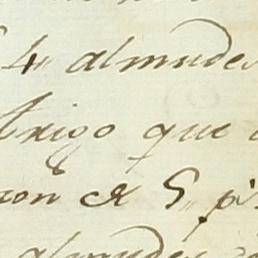 4 almudes
trigo que
son de 5 p
almudes